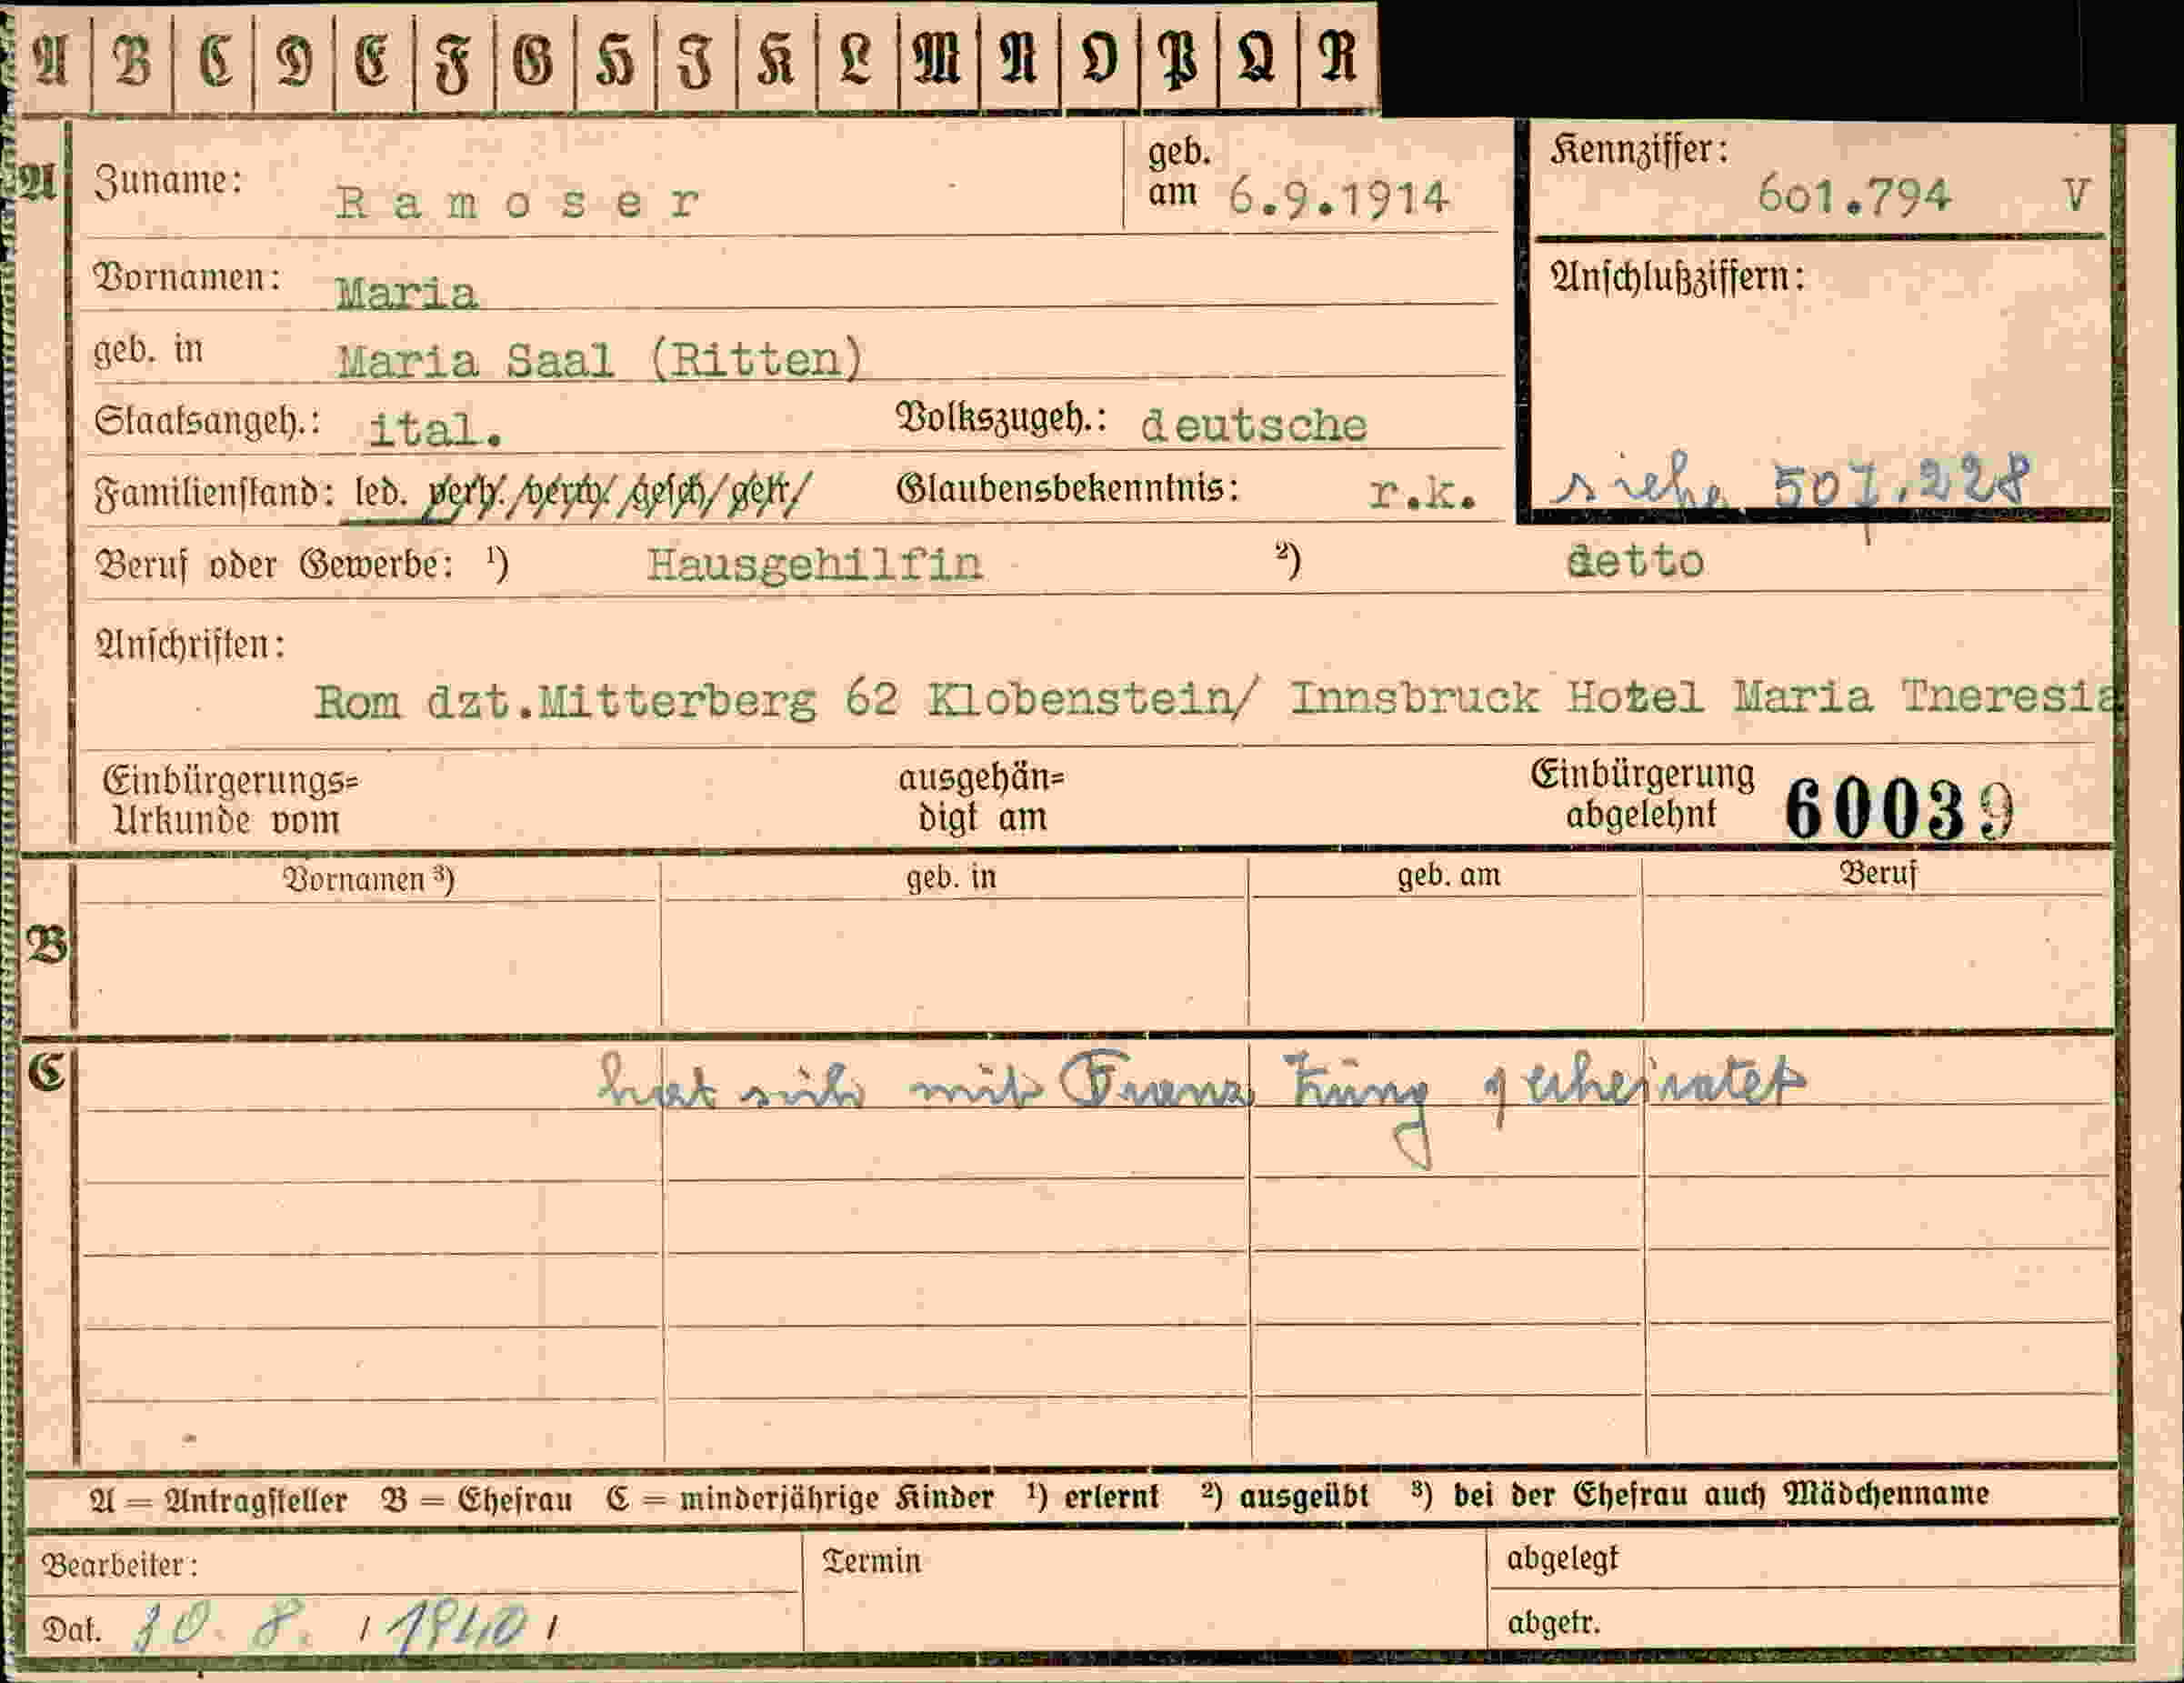 A B C D E F G H I K L M N O P Q R
A
Zuname: Ramoser geb. am 6.9.1914
Kennziffer: 601.794 V
Vornamen: Maria
Anschlußziffern:
geb. in Maria Saal (Ritten)
Staatsangeh.: ital. Volkszugeh.: deutsche
Familienstand: led. verh. verw. gesch. getr. Glaubensbekenntnis: r.k.
siehe 507.228
Beruf oder Gewerbe: ¹) Hausgehilfin ²) detto
Anschriften:
Rom dzt.Mitterberg 62 Klobenstein/ Innsbruck Hotel Maria Theresia
Einbürgerungs= ausgehän= Einbürgerung
Urkunde vom digt am abgelehnt 60039
Vornamen ³) geb. in geb. am Beruf
B
C
hat sich mit Franz verheiratet
A = Antragsteller B = Ehefrau C = minderjährige Kinder ¹) erlernt ²) ausgeübt ³) bei der Ehefrau auch Mädchenname
Bearbeiter: Termin abgelegt
Dat. 8. 1940 abgetr.